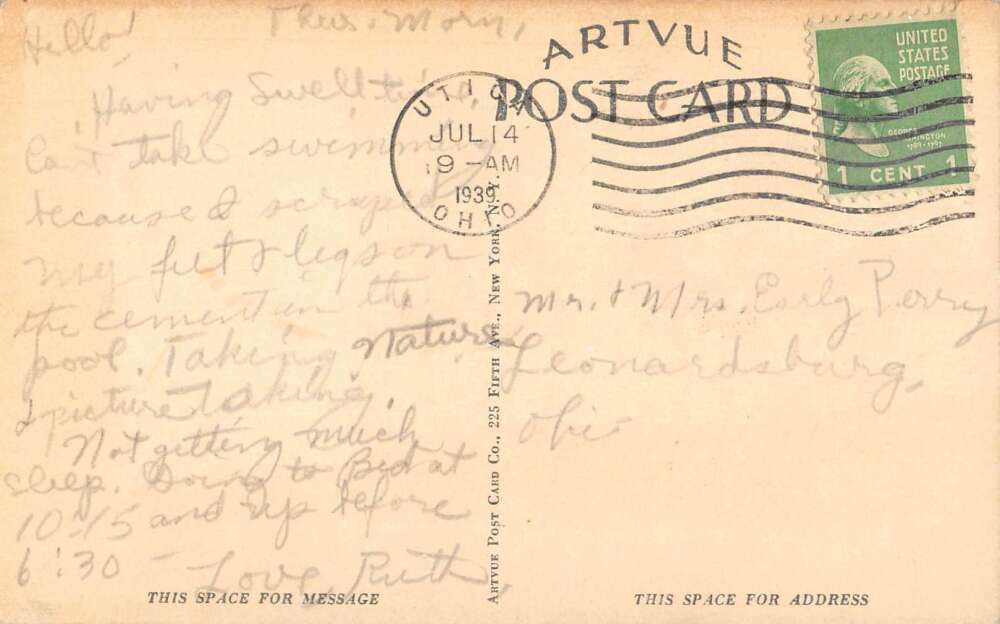 Thurs. Morn,
Hello!
Having Swell time.
Can't take swimming
because I scraped
my feet & legs on
the cement in the
pool. Taking Nature
& picture taking.
Not getting much
sleep. Going to Bed at
10:15 and up before
6:30 — Love, Ruth.
THIS SPACE FOR MESSAGE
ARTVUE
POST CARD
UTICA
JUL 14
9 - AM
1939
OHIO
UNITED
STATES
POSTAGE
GEORGE
WASHINGTON
1789-1797
1 CENT 1
ARTVUE POST CARD CO., 225 FIFTH AVE., NEW YORK, N. Y.
Mr. & Mrs. Early Perry
Leonardsburg,
Ohio
THIS SPACE FOR ADDRESS